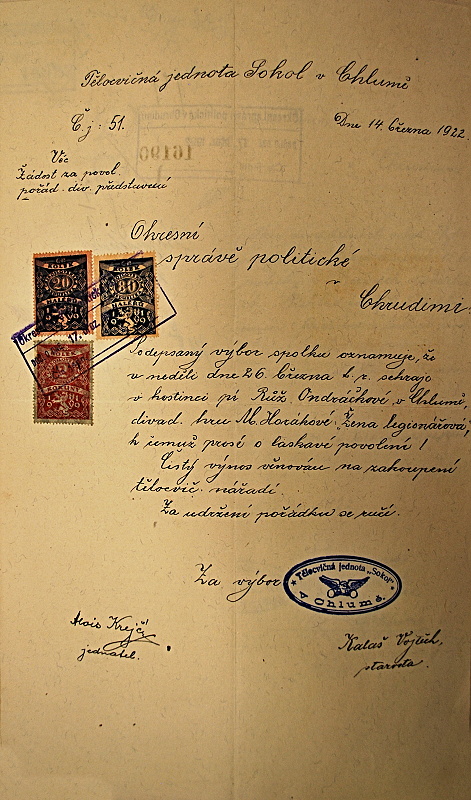 Tělocvičná jednota Sokol v Chlumě
Č. j: 51.
Dne 14. března 1922.
Věc
Žádost za povol.
pořád. div. představení
Okresní
správě politické
v
Chrudimi.
KOLEK
20
HALÉŘŮ
KOLEK
80
HALÉŘŮ
2
Podepsaný výbor spolku oznamuje, že
v neděli dne 26. března t. r. sehraje
v hostinci pí Růž. Ondráčkové v Chlumě
divad. hru M. Horákové: Žena legionářova,
k čemuž prosí o laskavé povolení!
Čistý výnos věnován na zakoupení
tělocvič. nářadí.
Za udržení pořádku se ručí.
Za výbor
Tělocvičná jednota „Sokol"
v Chlumě.
Alois Krejčí
jednatel.
Kalaš Vojtěch,
starosta.
16190